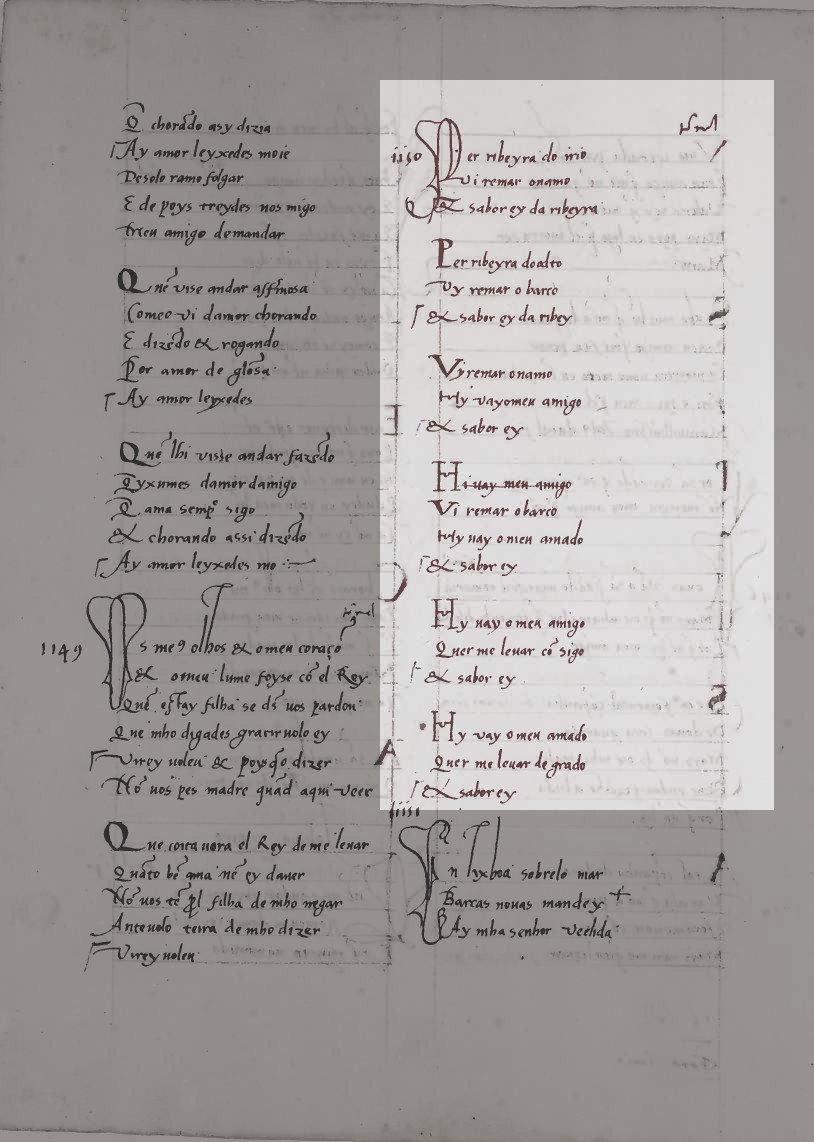 Q̃ chorãdo asy dizia
Ay amor leyxedes moie
De solo ramo folgar
E de poys treydes nos migo
meu amigo demandar
Quẽ vise andar
Como eo vi damor chorando
E dizẽdo & rogando
Por amor de glosa
Ay amor leyxedes
Quẽ lhi visse andar fazẽdo
Q̃yxumes damor damigo
Q̃ ama semp̃ sigo
& chorando assi dizẽdo
Ay amor leyxedes mo
1149
s me9 olhos & o meu coraçõ
& o meu lume foyse cõ el Rey
Quẽ estay filha se ds̃ uos pardon
Que mho digades gracir uolo ey
Direy uoleu & poys dizer
Nõ uos pes madre quãd aqui veer
Que coita uora el Rey de me leuar
Quãto bẽ ama nẽ ey dauer
Nõ uos tẽ p̃l filha de mho negar
Ante uolo terra de mho dizer
Direy uoleu
1150
Per ribeyra do irio
Vi remar o namo
& sabor ey da ribeyra
Per ribeyra do alto
Vy remar o barco
& sabor ey da ribey
Vy remar o namo
Hy vay o meu amigo
& sabor ey
Hi uay meu amigo
Vi remar o barco
Hy uay o meu amado
& sabor ey
Hy uay o meu amigo
Quer me leuar cõ sigo
& sabor ey
Hy vay o meu amado
Quer me leuar de grado
& sabor ey
1151
En lixboa sobrelo mar
Barcas nouas mandey
Ay mha senhor velida